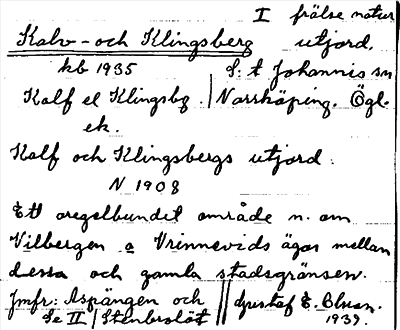 I frälse natur
Kalv- och Klingsberg utjord.
kb 1935 S:t Johannis sn
Kalf el Klingsbg. Norrköping. Ögl.
ek.
Kalf och Klingsbergs utjord.
N 1908
Ett oregelbundet område n. om
Vilbergen o Vrinnevids ägor mellan
dessa och gamla stadsgränsen.
Jmfr: Aspängen och Gustaf E. Blman.
Se II Stenbrolöt 1939.